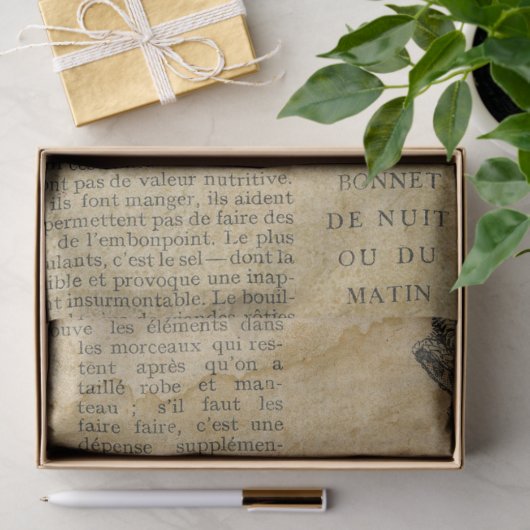 ont pas de valeur nutritive.
ils font manger, ils aident
permettent pas de faire des
de l'embonpoint. Le plus
ulants, c'est le sel—dont la
ible et provoque une inap-
nt insurmontable. Le bouil-
BONNET
DE NUIT
OU DU
MATIN
ouve les éléments dans
les morceaux qui res-
tent après qu'on a
taillé robe et man-
teau ; s'il faut les
faire faire, c'est une
dépense supplémen-